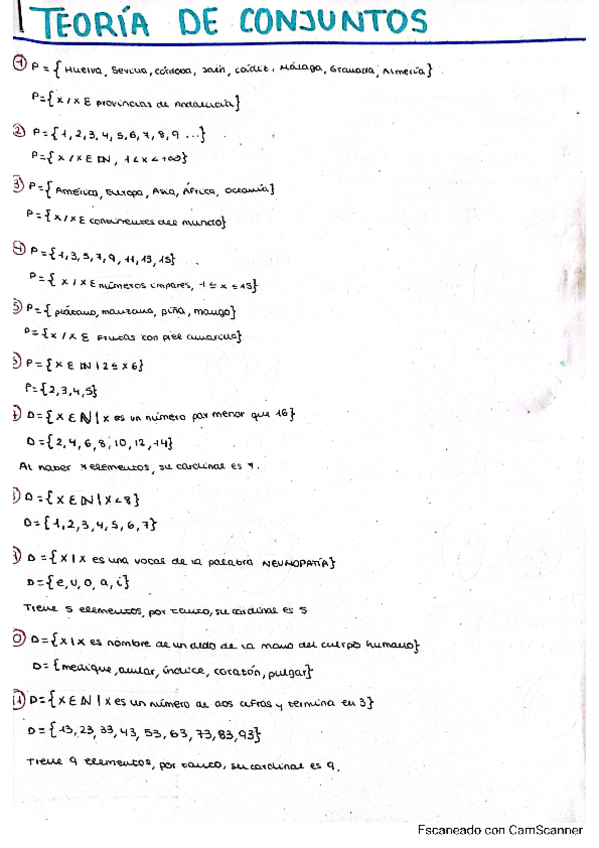 TEORÍA DE CONJUNTOS
1) P = { Huelva, Sevilla, córdoba, Jaén, Cádiz, Málaga, Granada, Almería}
P={x/x E provincias de Andalucía}
2) P={1,2,3,4,5,6,7,8,9 ...}
P={x/x E IN, 1<x<+∞}
3) P={América, Europa, Asia, África, Oceanía}
P={x/x E continentes del mundo}
4) P={1,3,5,7,9,11,13,15}
P={ x/x E números impares, 1≤x≤15}
5) P={ plátano, manzana, piña, mango}
P={x/x E Frutas con piel amarilla}
P={x E IN | 2≤x 6}
P={2,3,4,5}
D={x E N | x es un número par menor que 16}
D={2,4,6,8,10,12,14}
Al haber 7 elementos, su cardinal es 7.
D={x E IN | x<8}
D={1,2,3,4,5,6,7}
D={x|x es una vocal de la palabra NEUMOPATÍA}
D={e,u,o,a,i}
Tiene 5 elementos, por tanto, su cardinal es 5
D={x|x es nombre de un dedo de la mano del cuerpo humano}
D={meñique, anular, índice, corazón, pulgar}
11) D={x E N | x es un número de dos cifras y termina en 3}
D={13,23,33,43,53,63,73,83,93}
Tiene 9 elementos, por tanto, su cardinal es 9.
Escaneado con CamScanner